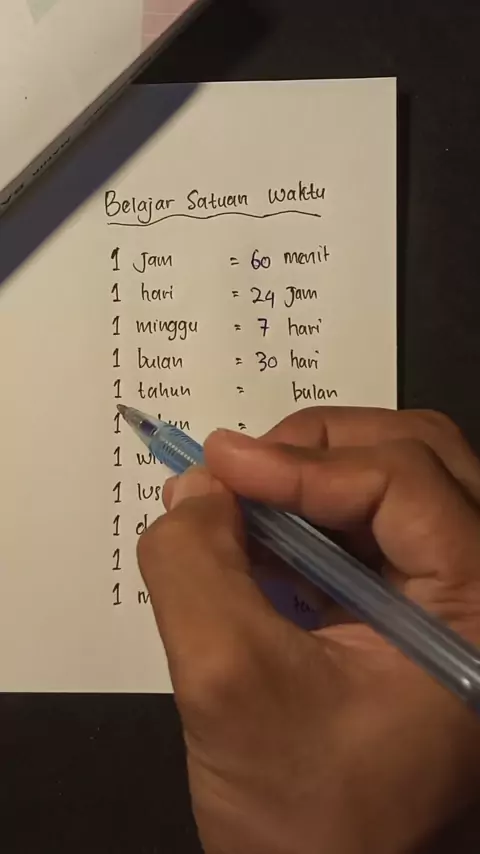 Belajar Satuan Waktu
1 Jam = 60 menit
1 hari = 24 Jam
1 minggu = 7 hari
1 bulan = 30 hari
1 tahun = bulan
1 =
1
1 lus
1 d
1
1 m